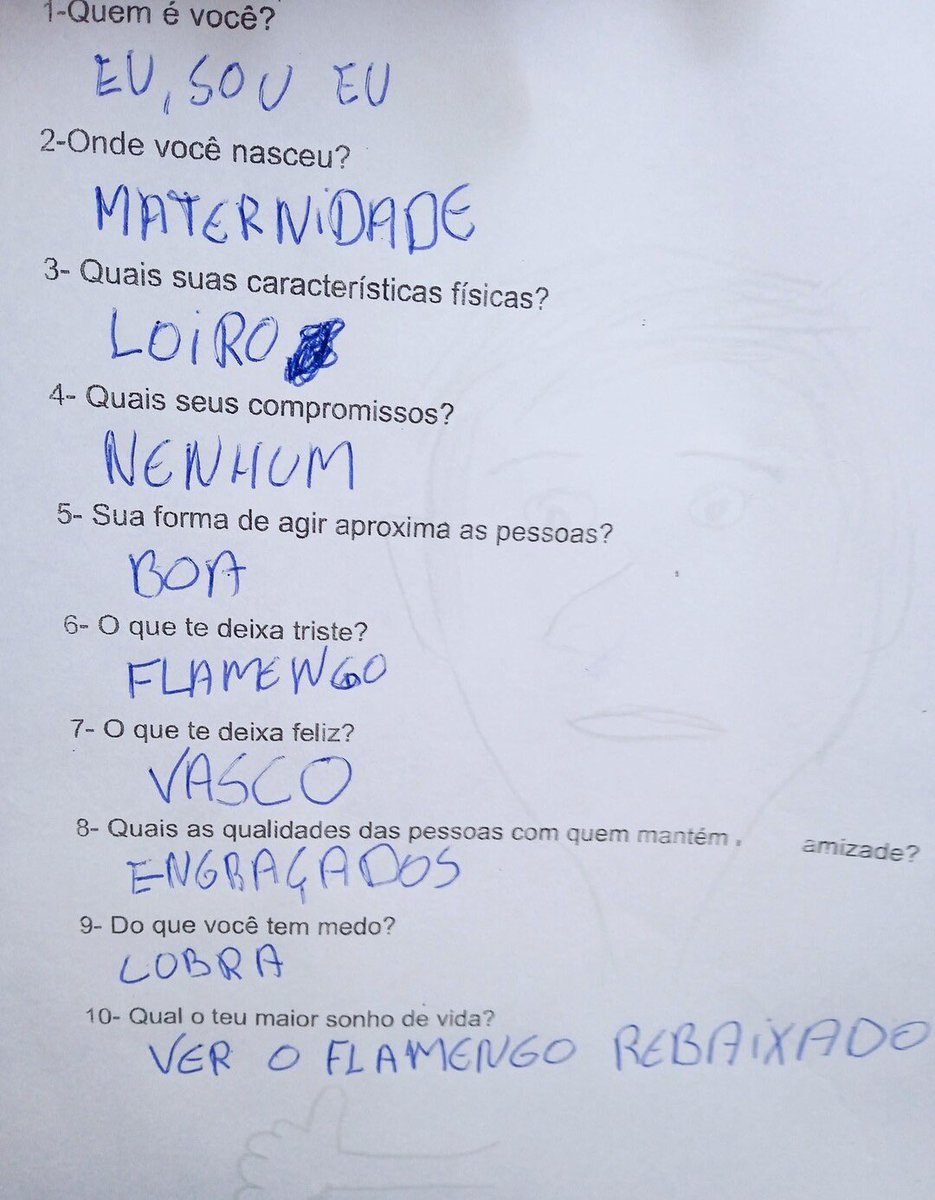 1-Quem é você?
EU, SOU EU
2-Onde você nasceu?
MATERNiDADE
3- Quais suas características físicas?
LOiRO
4- Quais seus compromissos?
NENHUM
5- Sua forma de agir aproxima as pessoas?
BOA
6- O que te deixa triste?
FLAMENGO
7- O que te deixa feliz?
VASCO
8- Quais as qualidades das pessoas com quem mantém amizade?
ENGRAÇADOS
9- Do que você tem medo?
COBRA
10- Qual o teu maior sonho de vida?
VER O FLAMENGO REBAiXADO